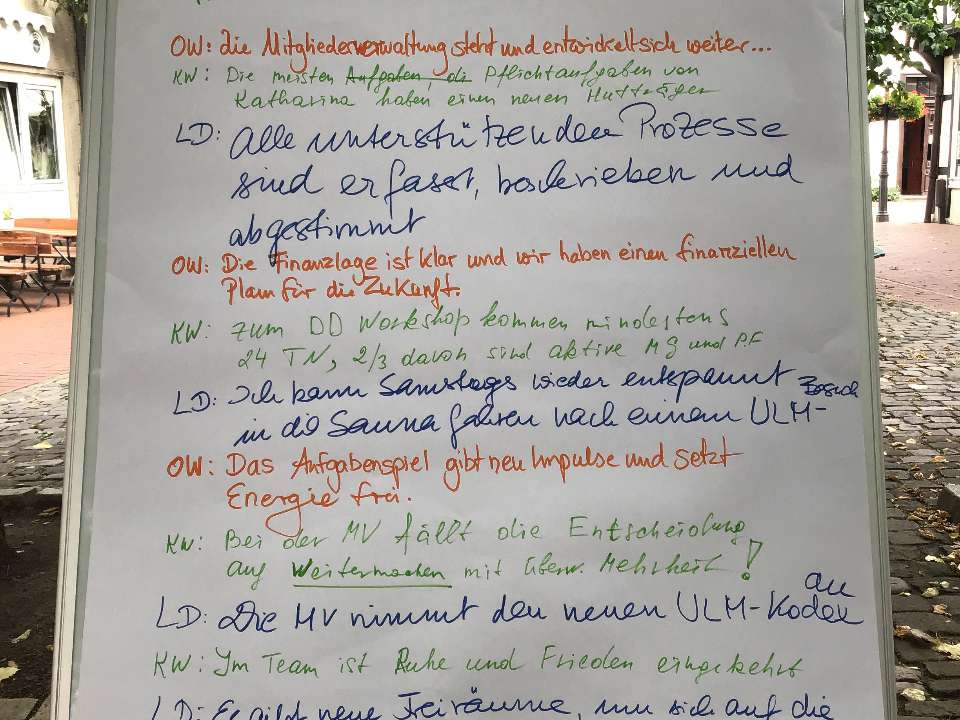 OW: die Mitgliederverwaltung steht und entwickelt sich weiter...
KW: Die meisten Aufgaben, die Pflichtaufgaben von
Katharina haben einen neuen Hutträger
LD: Alle unterstützenden Prozesse
sind erfasst, beschrieben und
abgestimmt
OW: Die Finanzlage ist klar und wir haben einen finanziellen
Plan für die Zukunft.
KW: zum DD Workshop kommen mindestens
24 TN, 2/3 davon sind aktive MG und P.F
LD: Ich kann Samstags wieder entspannt
in die Sauna fahren nach einem ULM-Besuch
OW: Das Aufgabenspiel gibt neu Impulse und setzt
Energie frei.
KW: Bei der MV fällt die Entscheidung
auf Weitermachen mit überw. Mehrheit!
LD: Die MV nimmt den neuen ULM-Kodex an
KW: Im Team ist Ruhe und Frieden eingekehrt
LD: Es gibt neue Freiräume, um sich auf die